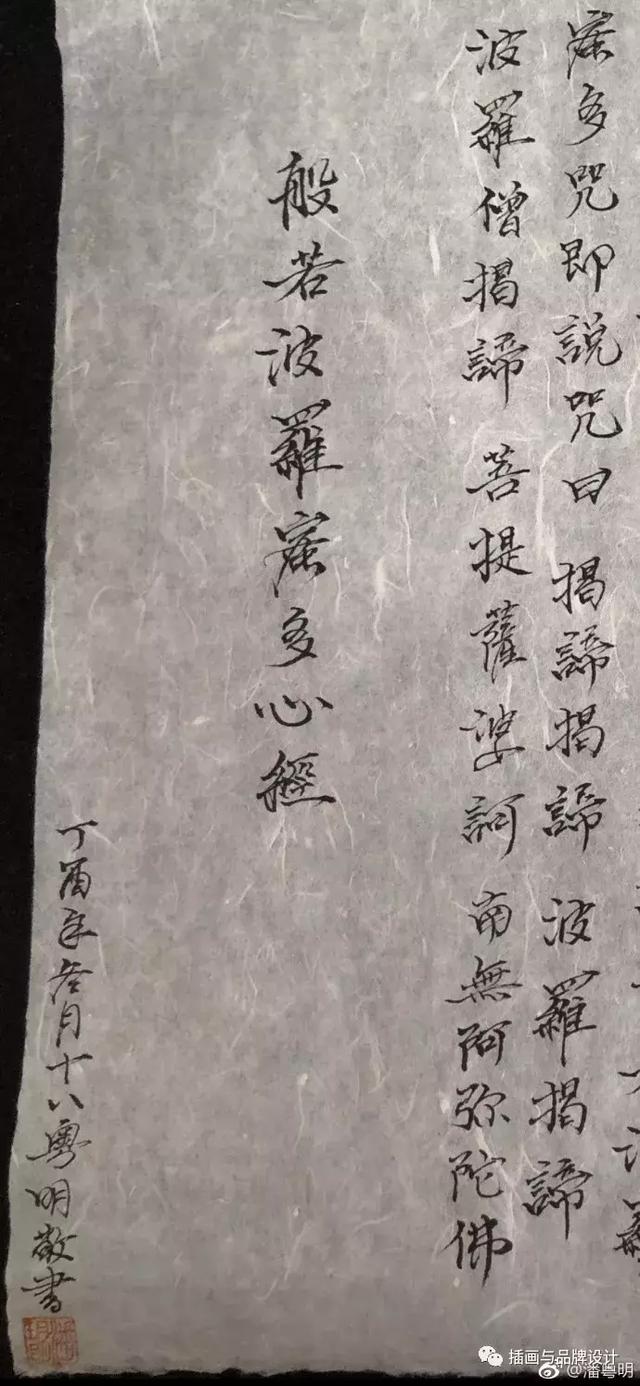 蜜多咒即說咒曰 揭諦揭諦 波羅揭諦
波羅僧揭諦 菩提薩婆訶 南無阿弥陀佛
般若波羅蜜多心經
丁酉年叁月十八粵明敬書
插画与品牌设计
@潘粤明